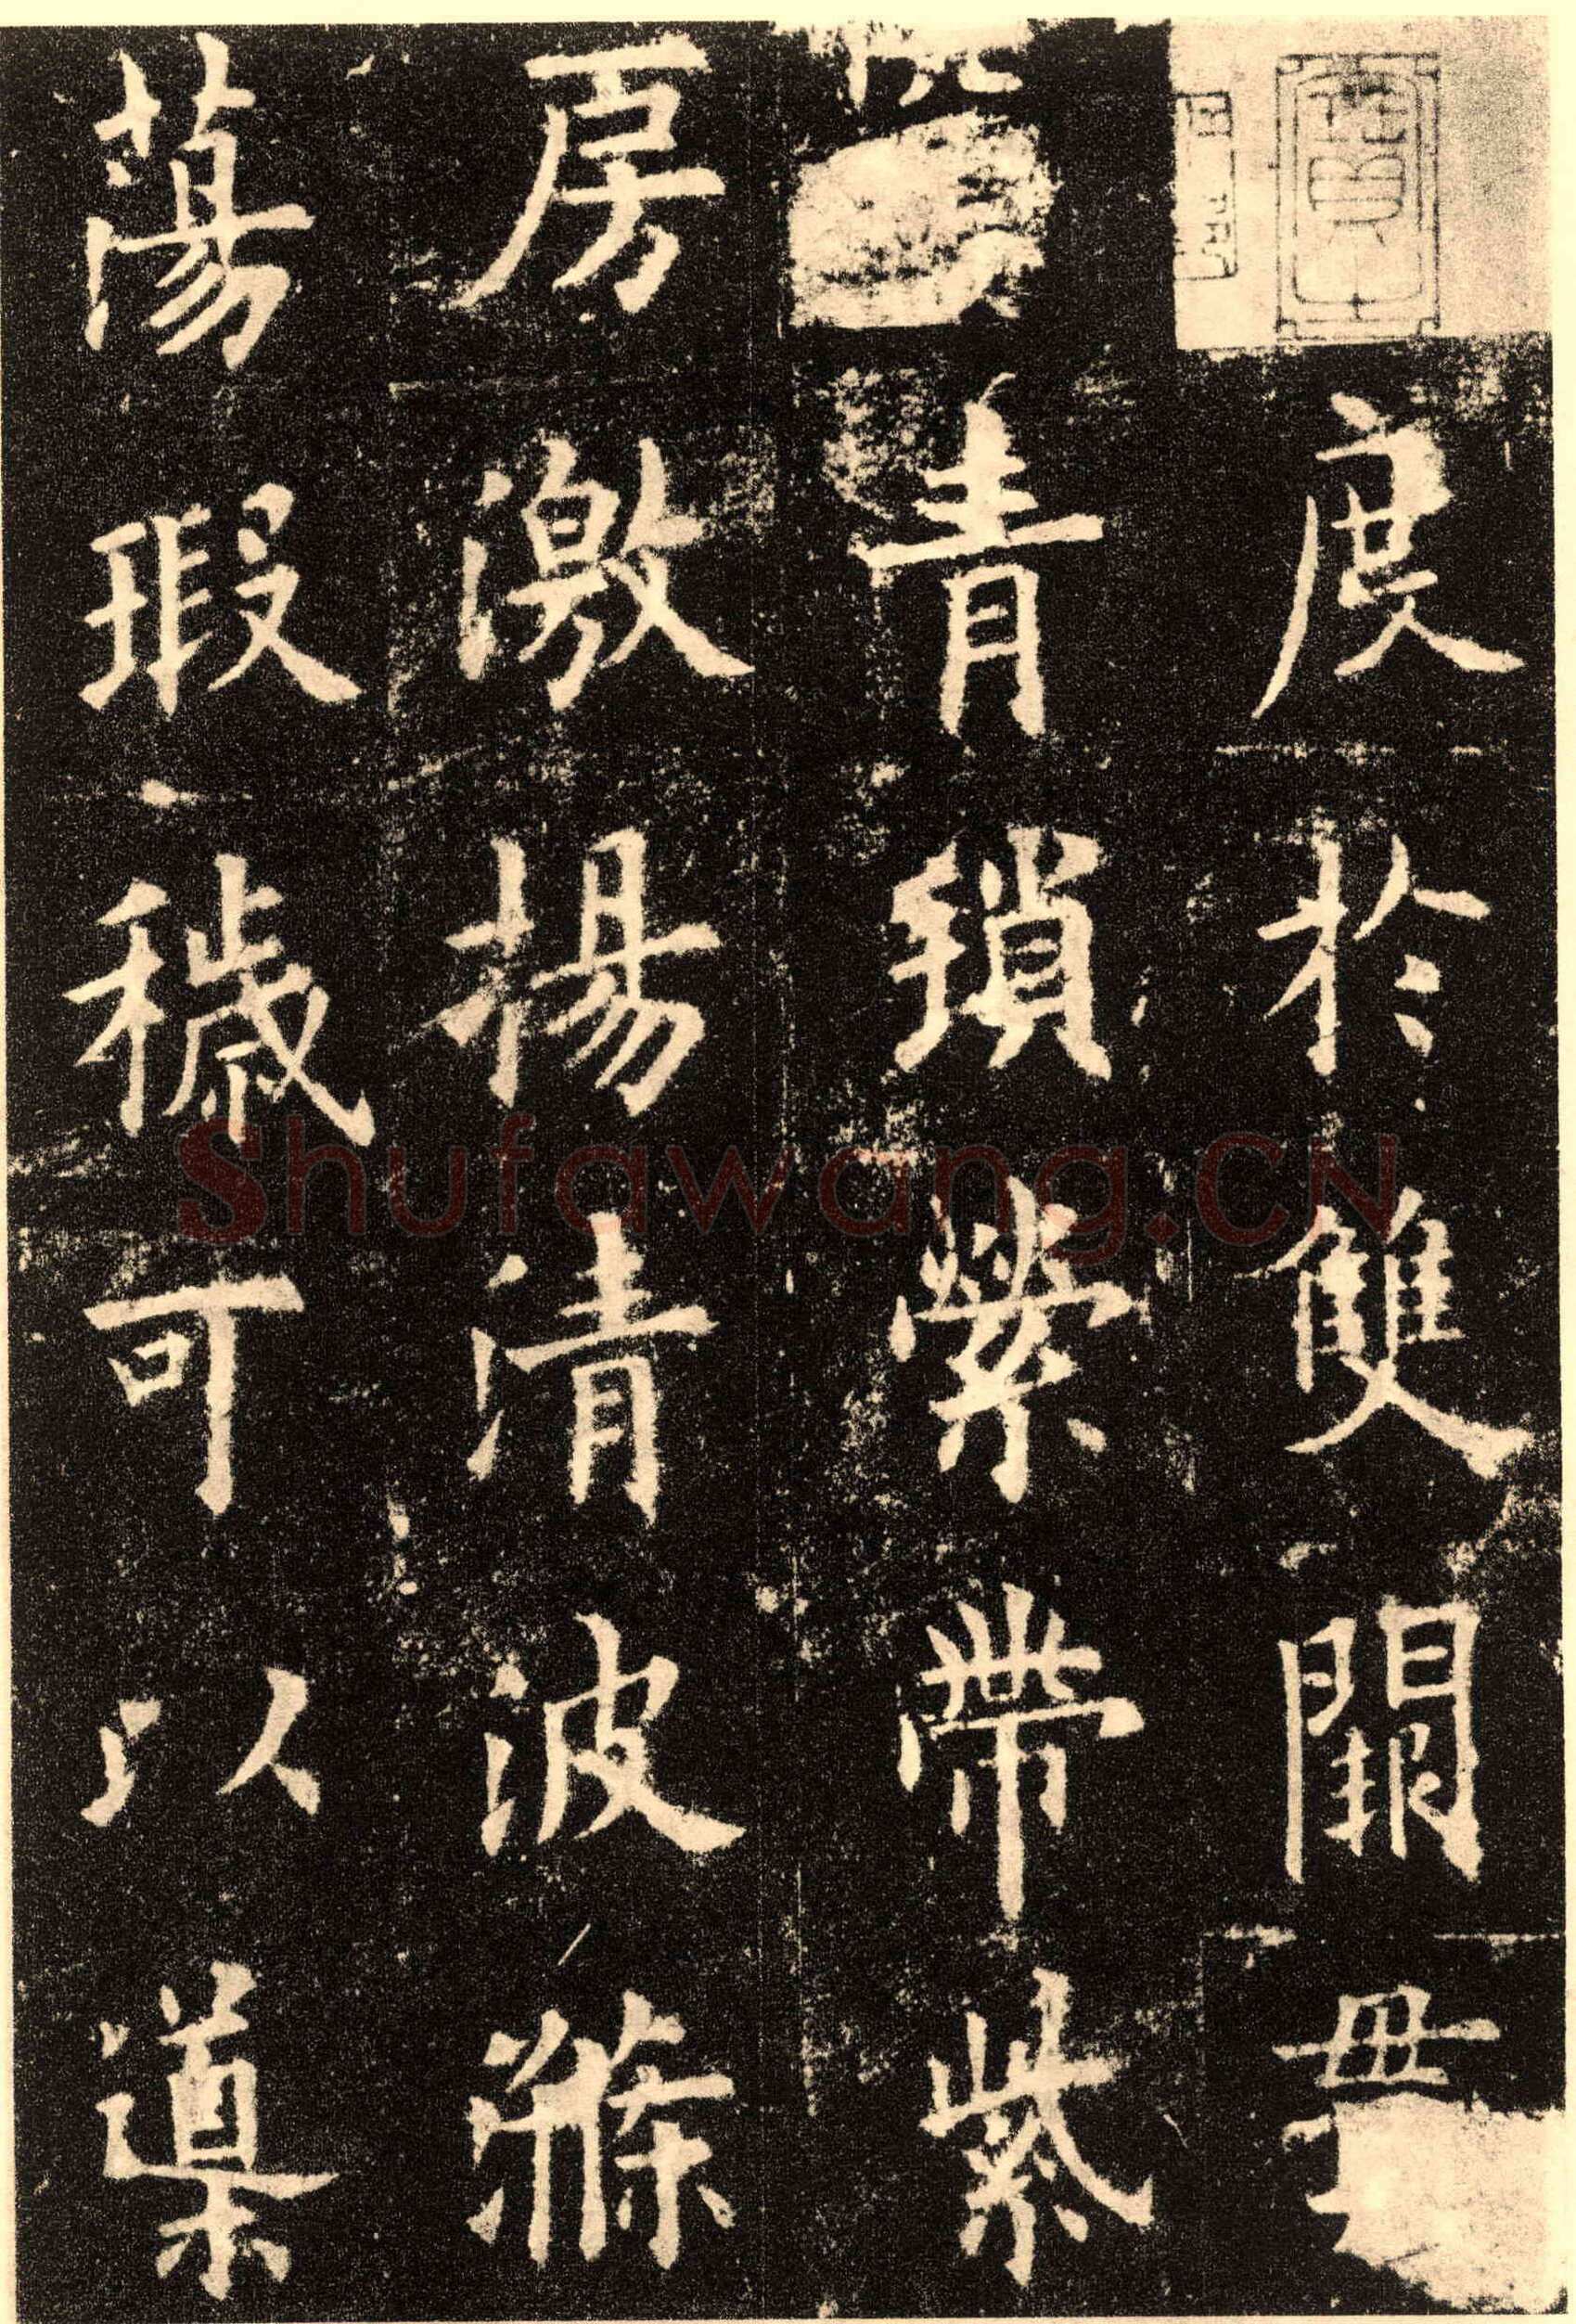 度於雙闕貫
青瑣縈帶紫
房激揚清波滌
蕩瑕穢可以導
Shufawang.CN